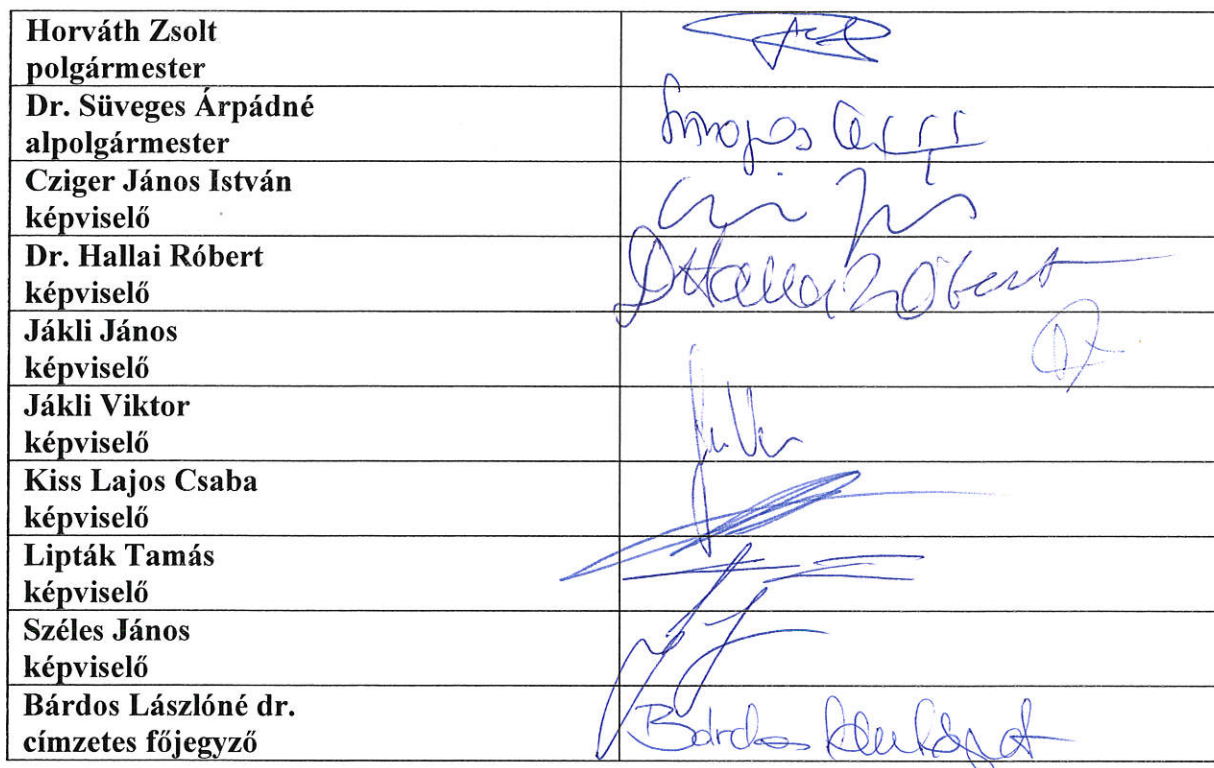 Horváth Zsolt
polgármester
Dr. Süveges Árpádné
alpolgármester
Cziger János István
képviselő
Dr. Hallai Róbert
képviselő
Jákli János
képviselő
Jákli Viktor
képviselő
Kiss Lajos Csaba
képviselő
Lipták Tamás
képviselő
Széles János
képviselő
Bárdos Lászlóné dr.
címzetes főjegyző
Bárdos